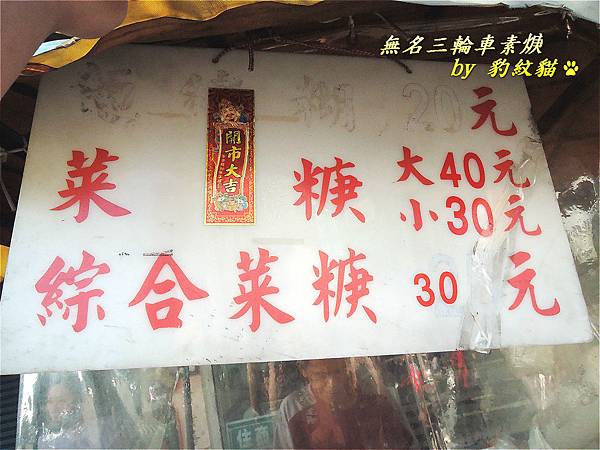 無名三輪車素焿
by 豹紋貓
20元
開市大吉
菜焿 大40元
小30元
綜合菜焿 30元
住商